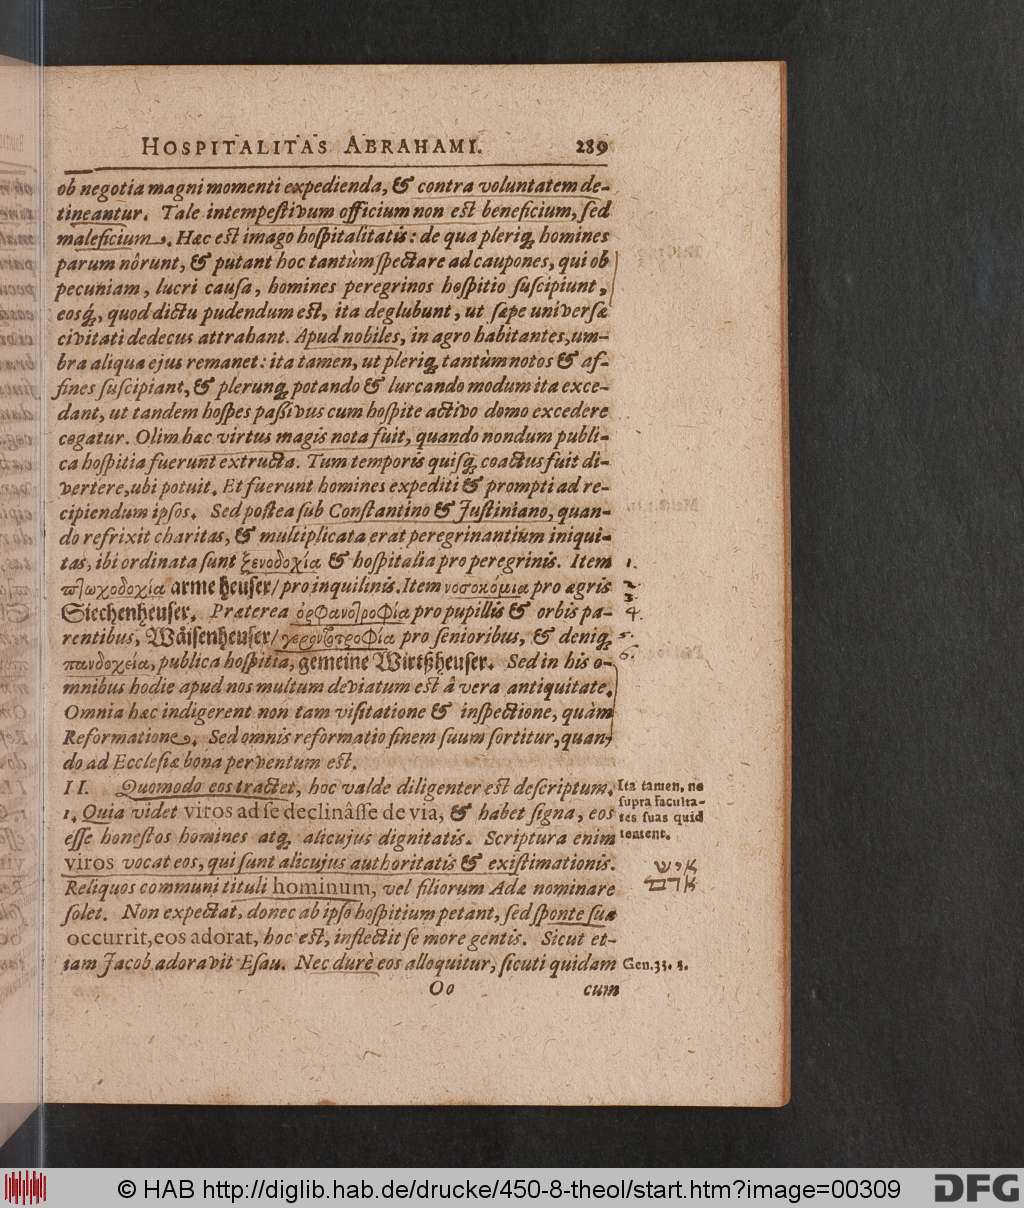 HOSPITALITAS ABRAHAMI. 289
ob negotia magni momenti expedienda, & contra voluntatem de-
tineantur. Tale intempeſtivum officium non eſt beneficium, ſed
maleficium. Hæc eſt imago hoſpitalitatis: de qua pleriq; homines
parum nôrunt, & putant hoc tantùm ſpectare ad caupones, qui ob
pecuniam, lucri cauſa, homines peregrinos hoſpitio ſuſcipiunt,
eosq́;, quod dictu pudendum eſt, ita deglubunt, ut ſæpe univerſæ
civitati dedecus attrahant. Apud nobiles, in agro habitantes, um-
bra aliqua ejus remanet: ita tamen, ut pleriq; tantùm notos & af-
fines ſuſcipiant, & plerunq; potando & lurcando modum ita exce-
dant, ut tandem hoſpes paſſivus cum hoſpite activo domo excedere
cogatur. Olim hæc virtus magis nota fuit, quando nondum publi-
ca hoſpitia fuerunt extructa. Tum temporis quiſq; coactus fuit di-
vertere, ubi potuit. Et fuerunt homines expediti & prompti ad re-
cipiendum ipſos. Sed poſtea ſub Conſtantino & Juſtiniano, quan-
do refrixit charitas, & multiplicata erat peregrinantium iniqui-
tas, ibi ordinata ſunt ξενοδοχία & hoſpitalia pro peregrinis. Item 1.
πτωχοδοχία arme heuſer/ pro inquilinis. Item νοσοκόμια pro ægris 2.
3.
Siechenheuſer. Præterea ὀρφανοτροφία pro pupillis & orbis pa- 4.
rentibus, Wäiſenheuſer/ γεροντοτροφία pro ſenioribus, & deniq; 5.
πανδοχεία, publica hoſpitia, gemeine Wirtßheuſer. Sed in his o- 6.
mnibus hodie apud nos multum deviatum eſt â vera antiquitate.
Omnia hæc indigerent non tam viſitatione & inſpectione, quàm
Reformatione. Sed omnis reformatio finem ſuum ſortitur, quan-
do ad Eccleſiæ bona perventum eſt.
II. Quomodo eos tractet, hoc valde diligenter eſt deſcriptum.
1. Quia videt viros ad ſe declinâſſe de via, & habet ſigna, eos
eſſe honeſtos homines atq; alicujus dignitatis. Scriptura enim
viros vocat eos, qui ſunt alicujus authoritatis & exiſtimationis.
Reliquos communi tituli hominum, vel filiorum Adæ nominare
ſolet. Non expectat, donec ab ipſo hoſpitium petant, ſed ſponte ſua
occurrit, eos adorat, hoc eſt, inflectit ſe more gentis. Sicut et-
iam Jacob adoravit Eſau. Nec durè eos alloquitur, ſicuti quidam
Oo cum
Ita tamen, ne
ſupra faculta-
tes ſuas quid
tentent.
איש
אדם
Gen. 33. 3.
© HAB http://diglib.hab.de/drucke/450-8-theol/start.htm?image=00309
DFG